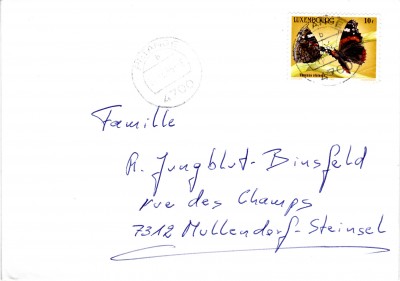 LUXEMBOURG 10F
4700
Famille
R. Jungblut-Binsfeld
rue des Champs
7312 Mullendorf-Steinsel